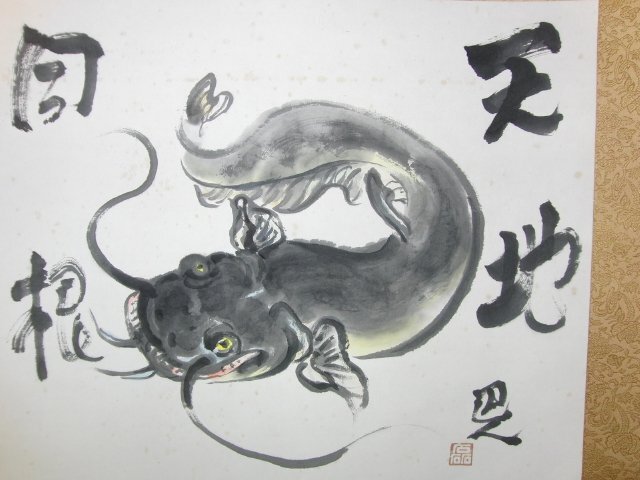 天地
同根